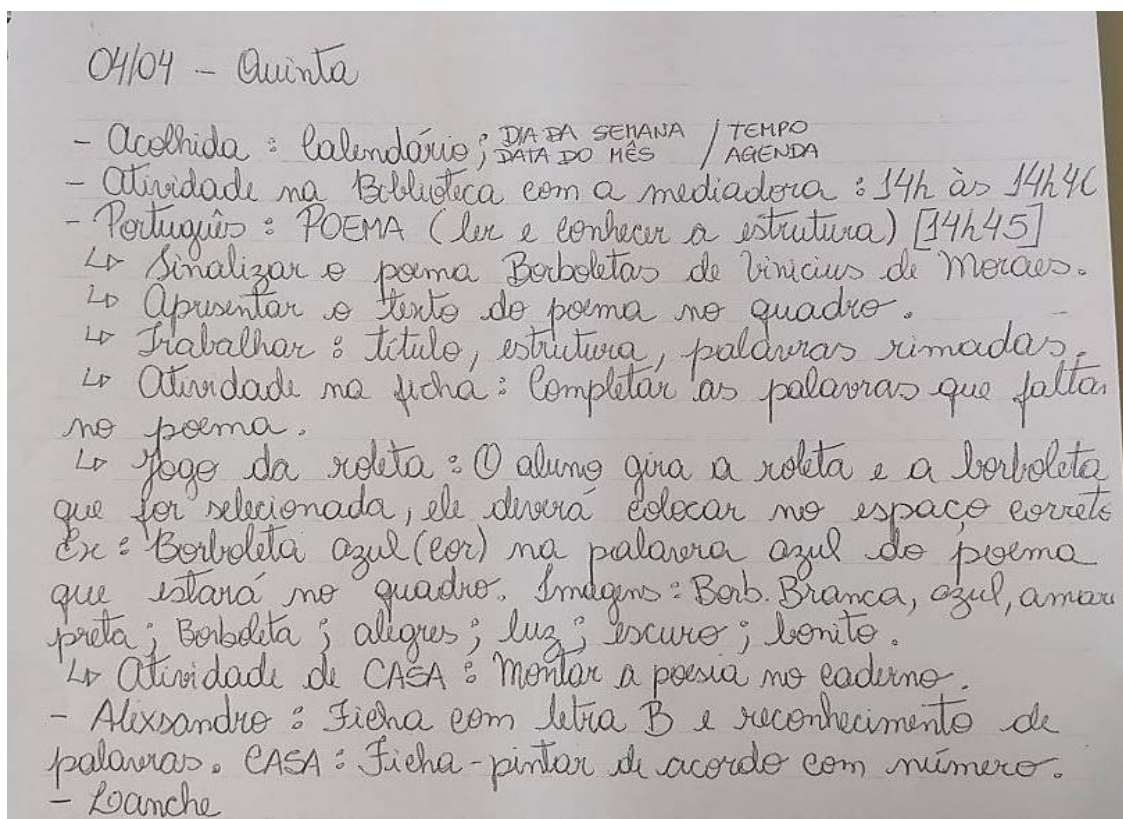 04/04 - Quinta
- Acolhida : Calendário ; DIA DA SEMANA / TEMPO
DATA DO MÊS / AGENDA
- Atividade na Biblioteca com a mediadora : 14h às 14h40
- Português : POEMA (ler e conhecer a estrutura) [14h45]
↳ Sinalizar o poema Borboletas de Vinicius de Moraes.
↳ Apresentar o texto do poema no quadro.
↳ Trabalhar : título, estrutura, palavras rimadas.
↳ Atividade na ficha : Completar as palavras que faltam
no poema.
↳ Jogo da roleta : O aluno gira a roleta e a borboleta
que for selecionada, ele deverá colocar no espaço correto
Ex : Borboleta azul (cor) na palavra azul do poema
que estará no quadro. Imagens : Borb. Branca, azul, amare
preta ; Borboleta ; alegres ; luz ; escuro ; bonito.
↳ Atividade de CASA : Montar a poesia no caderno.
- Alixsandro : Ficha com letra B e reconhecimento de
palavras. CASA : Ficha - pintar de acordo com número.
- Lanche